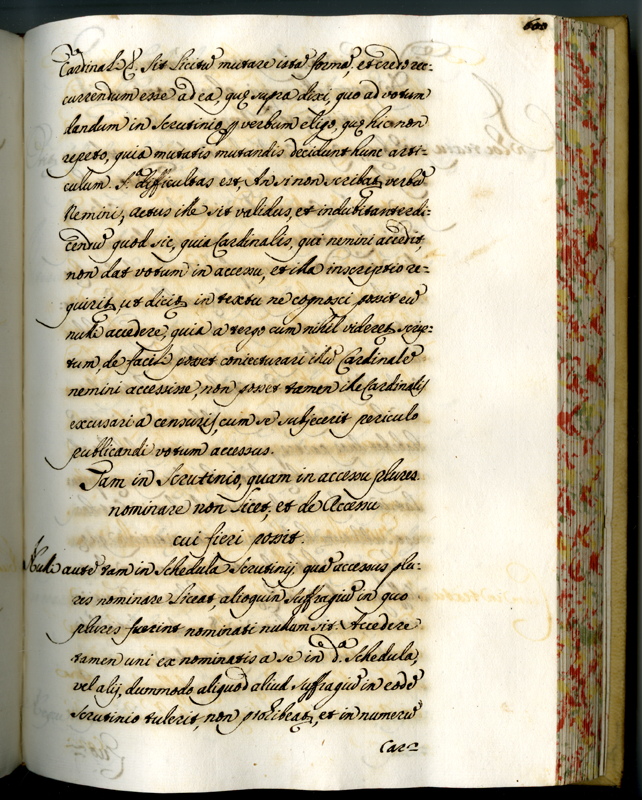 600
Cardinal. Sit licitū mutare istā formā, et credo re-
currendum esse ad ea, quę supra dixi, quo ad votum
dandum in Scrutinio p verbum eligo, quę hic non
repeto, quia mutatis mutandis decidunt hunc arti-
culum. S.ª difficultas est, An si non scribat verbū
Nemini, actus ille sit validus, et indubitanter di-
cendū quod sic, quia Cardinalis, qui nemini accedit,
non dat votum in accessu, et illa inscriptio re-
quirit, ut dicit in textu ne cognosci possit eū
nulli accedere, quia a tergo cum nihil videret scrip-
tum, de facili posset coniecturari illū Cardinalē
nemini accessisse, non posset tamen ille Cardinalis
excusari a censuris, cum se subjecerit periculo
publicandi votum accessus.
Tam in Scrutinio, quam in accessu plures
nominare non licet, et de Accessu
cui fieri possit.
Nulli autē tam in Schedula Scrutinij quā accessus plu-
res nominare liceat, alioquin suffragiū in quo
plures fuerint nominati nullum sit. Accedere
tamen uni ex nominatis a se in d.ª Schedula,
vel alij, dummodo aliquod aliud suffragiū in eodē
Scrutinio tulerit, non prohibeat, et in numerū
Car=